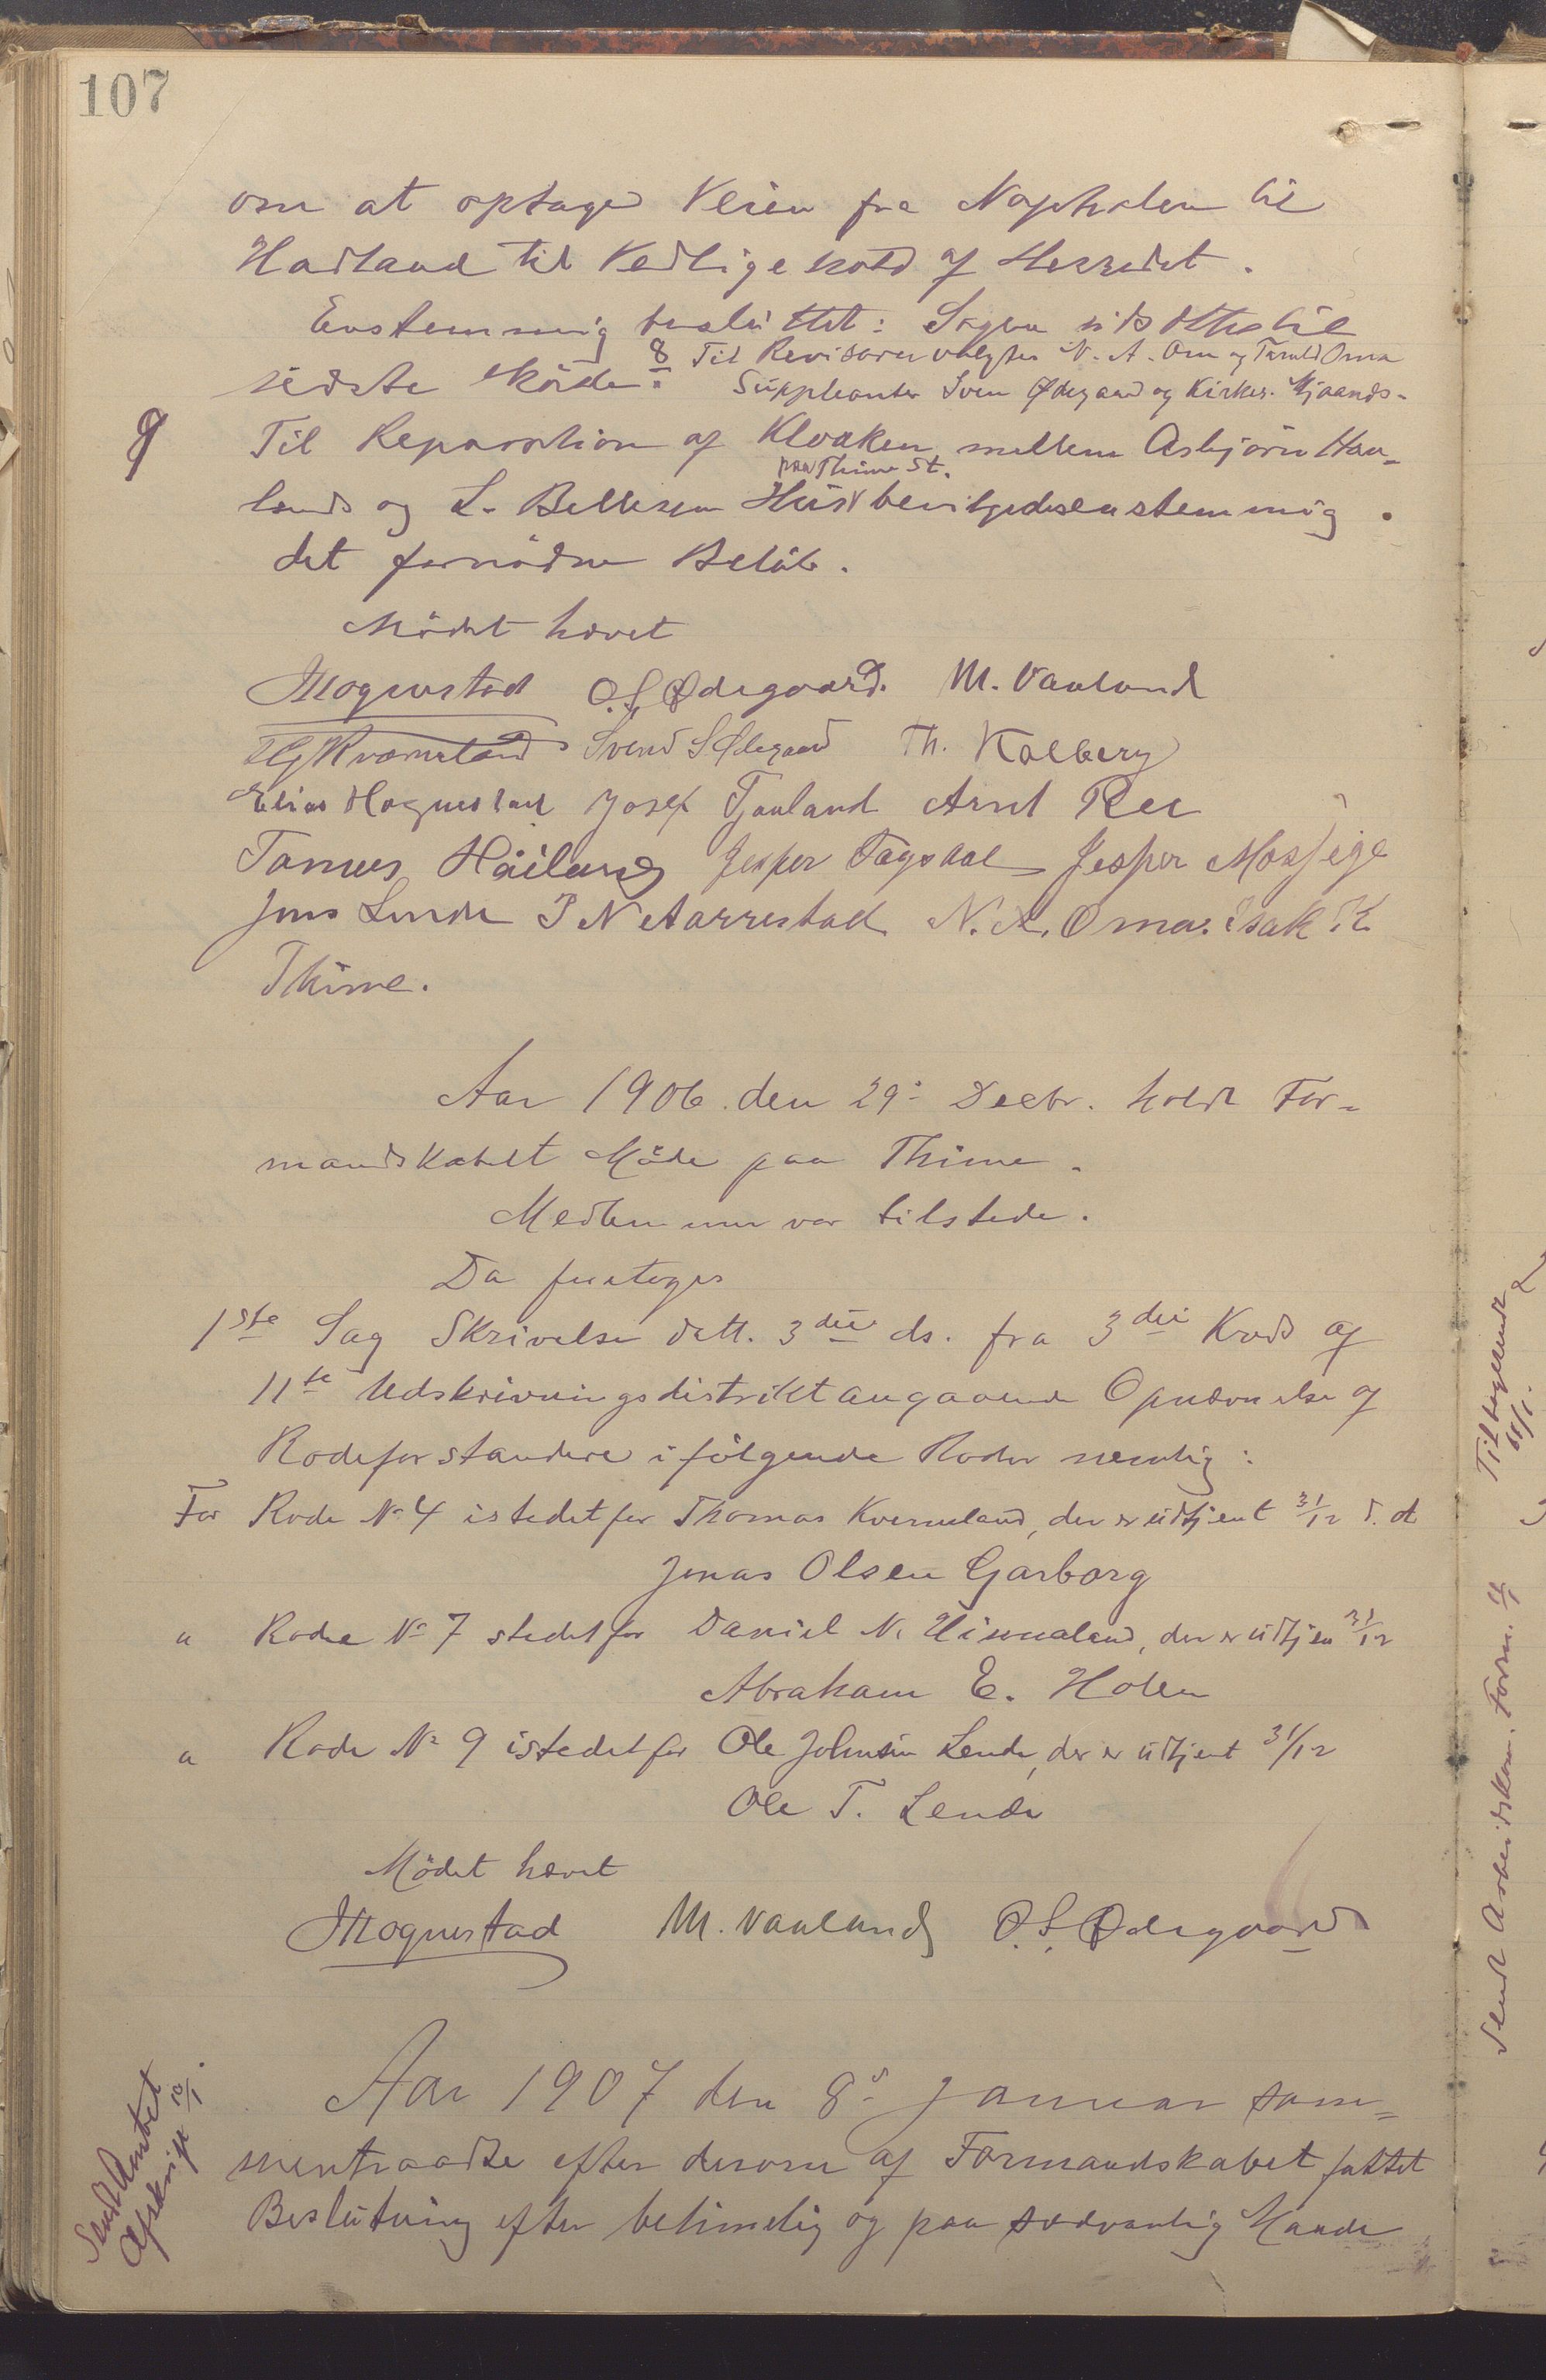 107
om at optage Veien fra Napholen til
Hadland til Vedligehold af Herredet.
Enstemmig besluttet: Sagen udsættes til
næste Møde.
8 Til Revisorer valgtes N. A. Oma og Oma
Suppleanter Sven Ødegaard og Kirkes. Mjaands-
9 Til Reparation af Kloaken mellem Asbjørn Hau-
lands og L. Bellesen Hus paa Thime St. bevilgedes enstemmig
det fornødne Beløb.
Mödet hævet
Mognestad O. S. Ødegaard. M. Vauland
Kværneland Svend S Ødegaard Th. Kalberg
Elias Hognestad Josef Tjaaland Arnt Ree
Tønnes Håiland Jesper Fagsdal Jesper Mossige
Jens Lende P N Aarrestad N. A. Oma. Isak K.
Thime.
Aar 1906 den 29: Decbr. holdt For-
mandskabet Möde paa Thime.
Medlemmer var tilstede.
Da foretoges
1ste Sag Skrivelse datt. 3die ds. fra 3die Kreds af
11te Udskrivningsdistrikt angaaende Opnævnelse af
Rodeforstandere i følgende Roder nemlig:
For Rode No 4 istedetfor Thomas Kverneland, der er udtjent 31/12 d. A
Jonas Olsen Garborg
" Rode No 7 stedetfor Daniel N. Hisnaland, der er udtjen 31/12
Abraham E. Holen
" Rode No 9 istedetfor Ole Johnsen Lende, der er udtjent 31/12
Ole T. Lende
Mödet hævet
Mognestad M. Vauland O. S. Ødegaard
Sendt Amtet
Afskrift 10/1.
Aar 1907 den 8de Januar sam-
mentraadte efter derom af Formandskabet fattet
Beslutning efter betimelig og paa sædvanlig Maade
Tilbagesendt
Sendt Arbeidskom. Form. 4/1